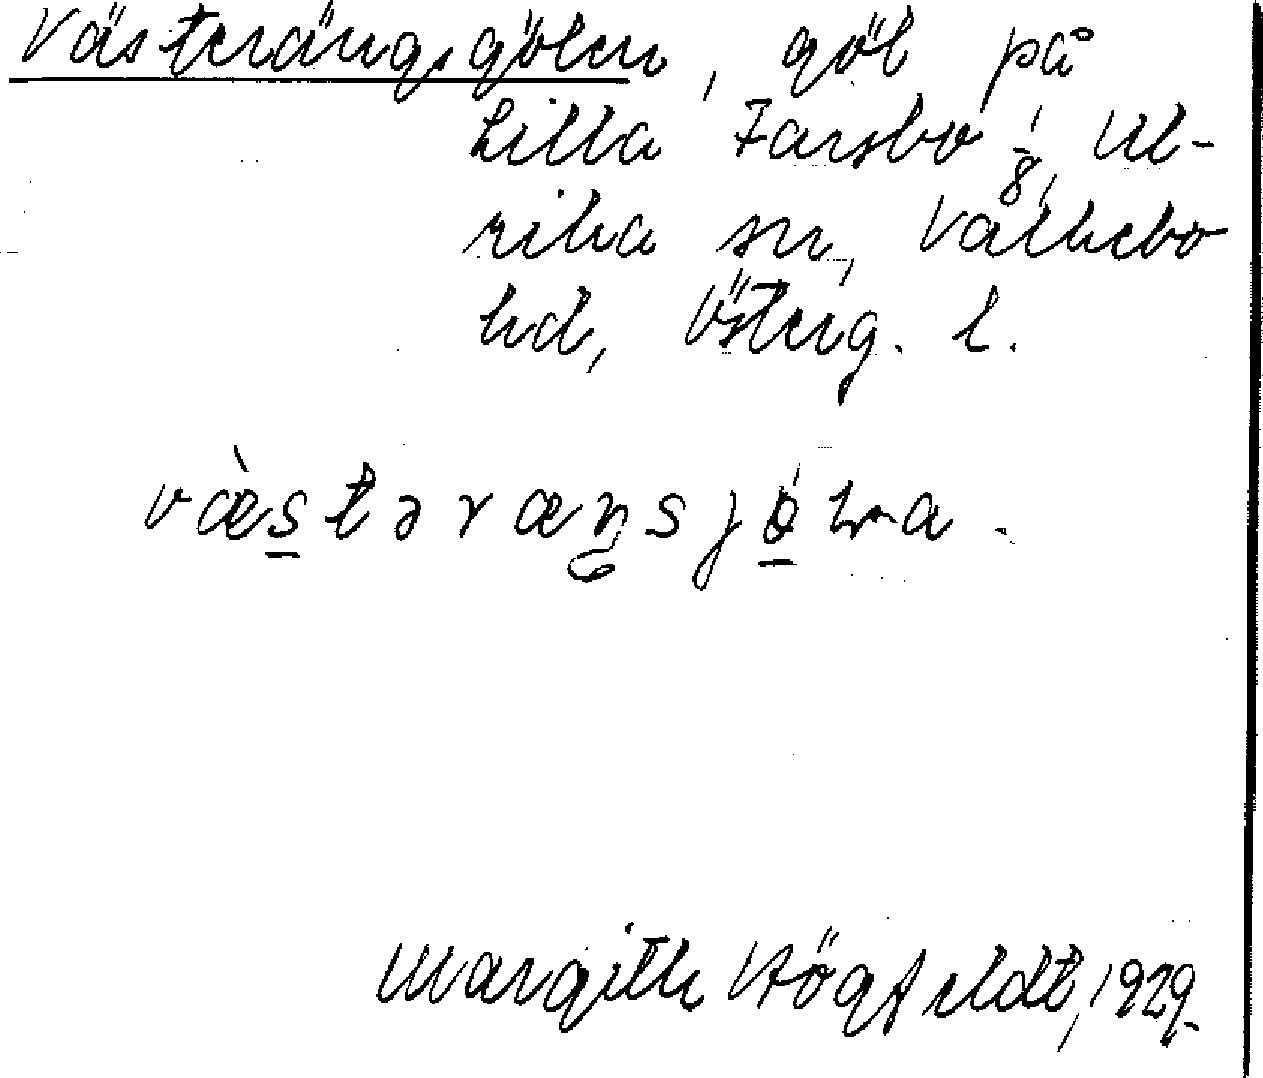 Västerängsgölen, göl på
Lilla Farsbo 1/8, Ul-
rika sn, Valkebo
hd, Österg. l.
væ̀stəræŋsjǿɽa.
Margith Högfeldt, 1929.